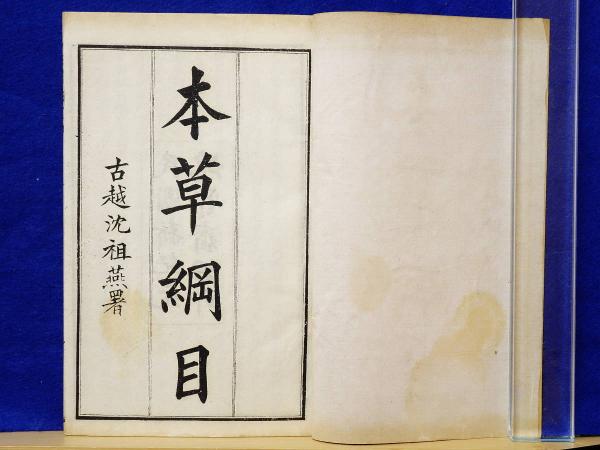 本草綱目
古越沈祖燕署